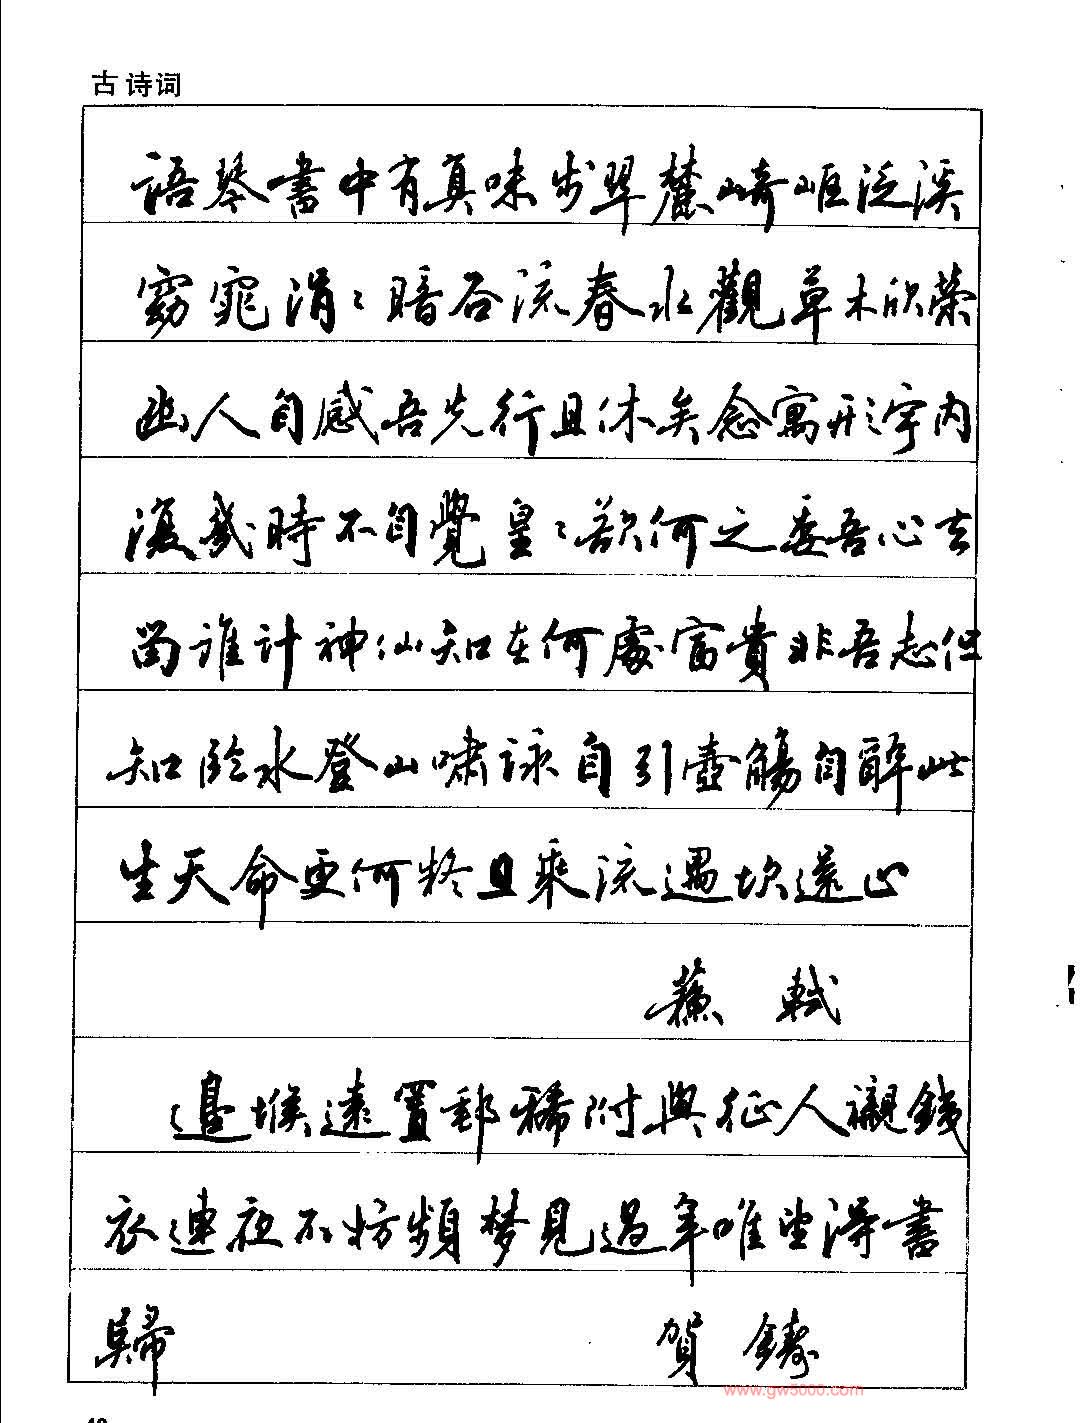 古诗词
語琴書中有真味步翠麓崎岖泛溪
窈窕涓〻暗谷流春水觀草木欣荣
幽人自感吾先行且休矣念寓形宇内
復幾時不自覺皇〻欲何之委吾心去
留谁计神仙知在何處富貴非吾志但
知临水登山嘯詠自引壺觴自醉此
生天命更何疑且乘流遇坎還止
蘇軾
邊堠遠置郵稀附與征人襯鐵
衣連夜不妨頻梦見過年唯望得書
歸
賀鑄
www.gw5000.com